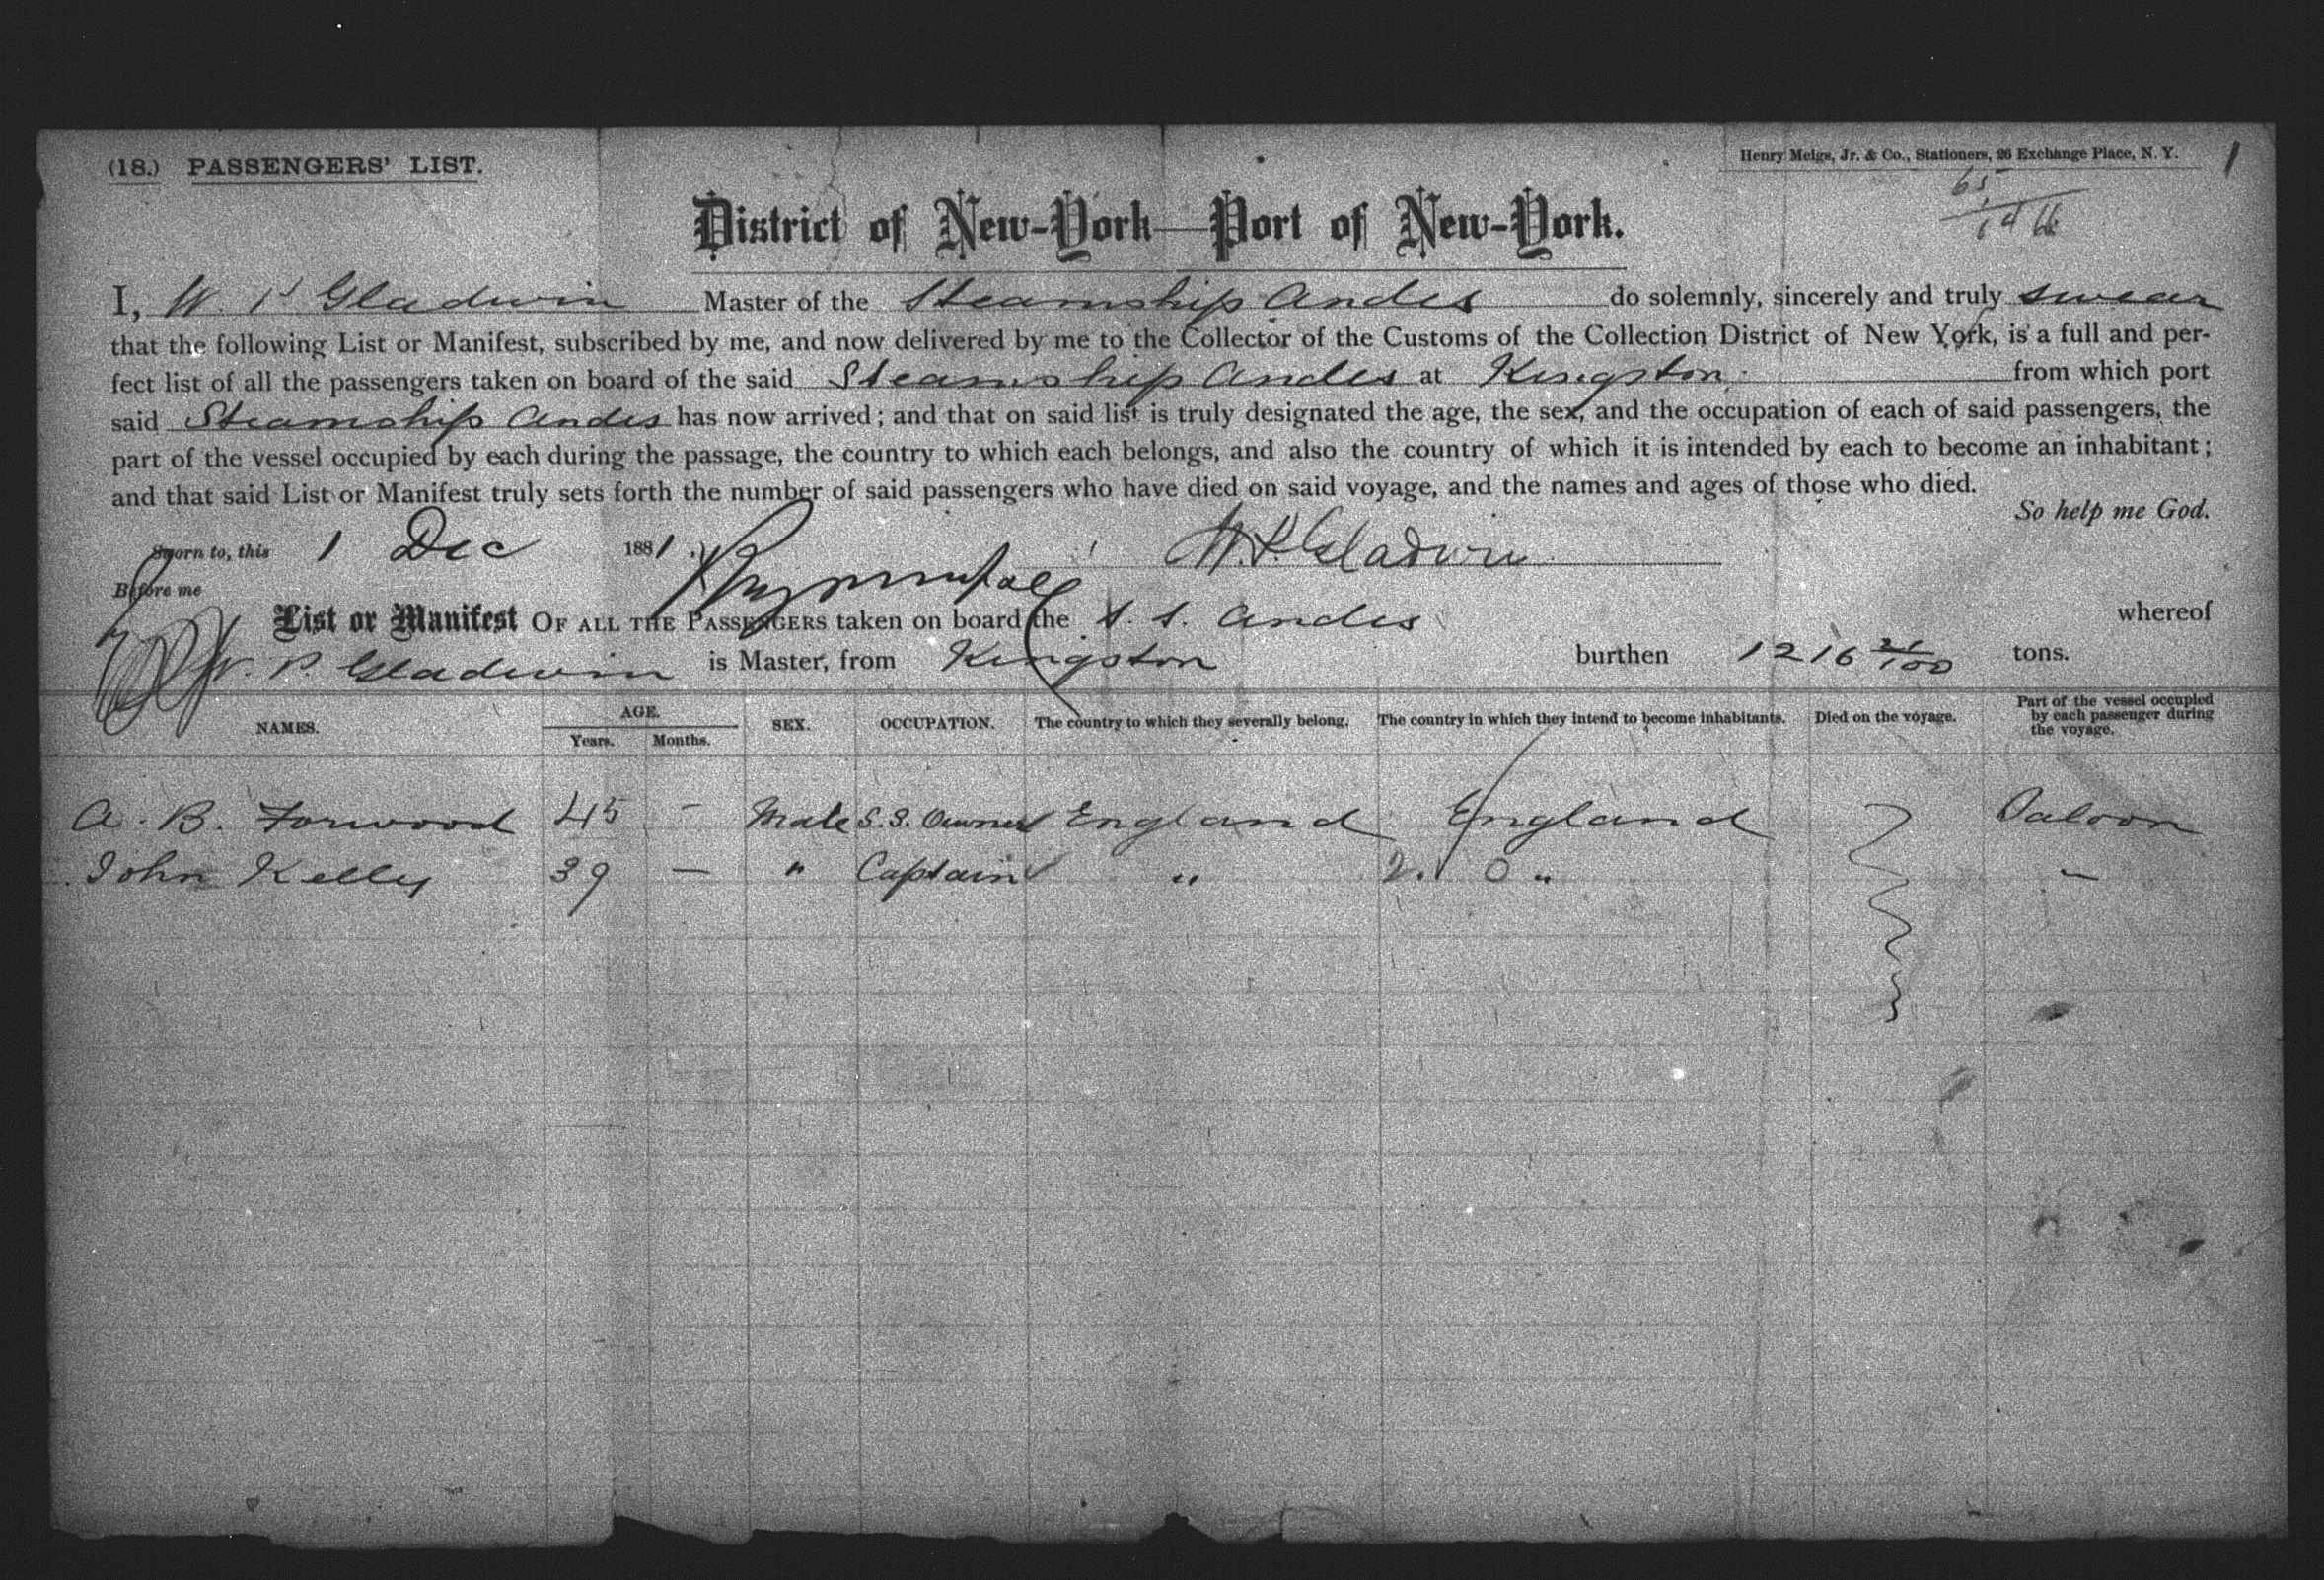 (18.) PASSENGERS' LIST.
Henry Meigs, Jr. & Co., Stationers, 26 Exchange Place, N. Y.
1
65
District of New-York—Port of New-York.
I, W. P Gladwin Master of the Steamship Andes do solemnly, sincerely and truly swear
that the following List or Manifest, subscribed by me, and now delivered by me to the Collector of the Customs of the Collection District of New York, is a full and per-
fect list of all the passengers taken on board of the said Steamship Andes at Kingston from which port
said Steamship Andes has now arrived; and that on said list is truly designated the age, the sex, and the occupation of each of said passengers, the
part of the vessel occupied by each during the passage, the country to which each belongs, and also the country of which it is intended by each to become an inhabitant;
and that said List or Manifest truly sets forth the number of said passengers who have died on said voyage, and the names and ages of those who died.
So help me God.
Sworn to, this 1 Dec 1881. W. P. Gladwin
Before me
List or Manifest OF ALL THE PASSENGERS taken on board the S. S. Andes whereof
W. P. Gladwin is Master, from Kingston burthen 1216 21/100 tons.
NAMES. AGE. Years. Months. SEX. OCCUPATION. The country to which they severally belong. The country in which they intend to become inhabitants. Died on the voyage. Part of the vessel occupied by each passenger during the voyage.
A. B. Forwood 45 - Male S.S. Owner England England Saloon
John Kelly 39 — " Captain " 2. 0 " "